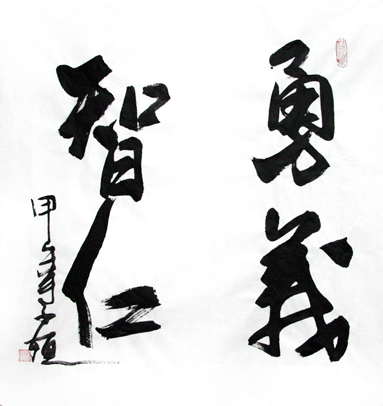 勇義
智仁
甲午